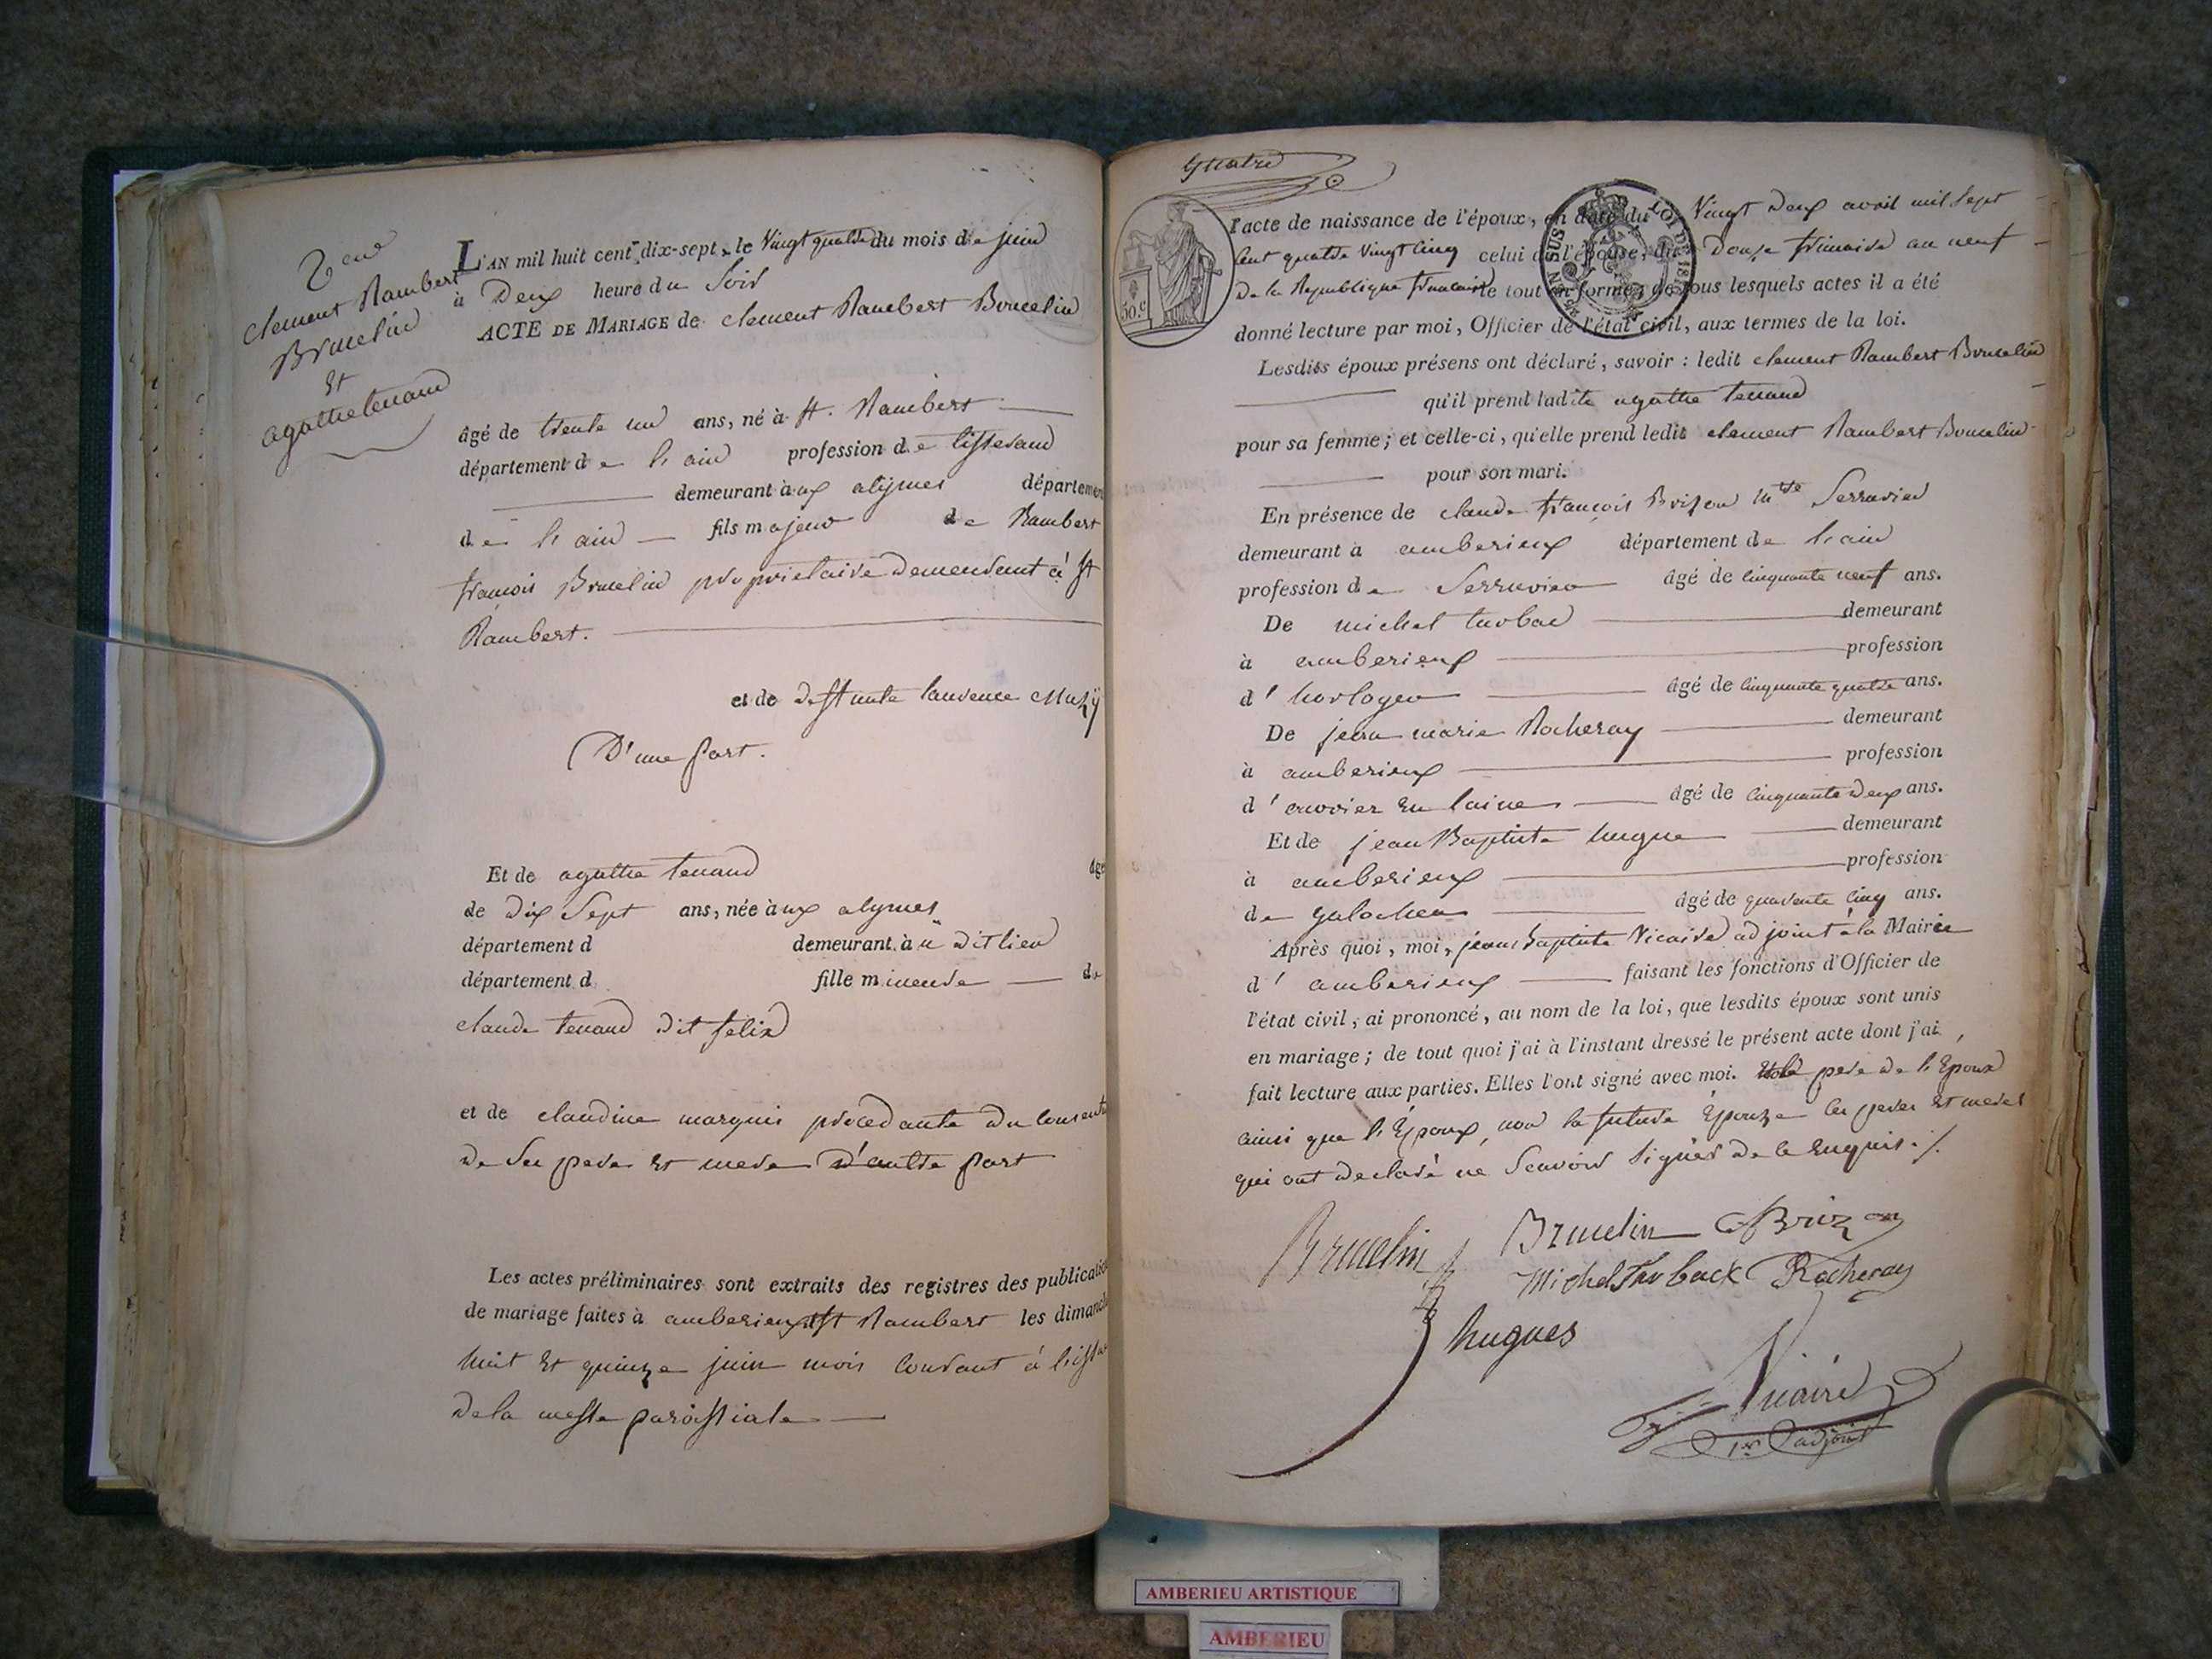 2eme
clement Rambert
Brucelin
Et
agathe tenand
L'AN mil huit cent dix-sept, le Vingt quatre du mois de juin
à Deux heure du Soir
ACTE DE MARIAGE de clement Rambert Brucelin
âgé de trente un ans, né à St. Rambert
département de l'ain profession de tisserand
demeurant aux alymes département
de l'ain fils majeur de Rambert
françois Brucelin proprietaire demeurant à St
Rambert.
et de deffunte laurence Muzy
D'une part.
Et de agathe tenand âgé
de dix Sept ans, née aux alymes
département d demeurant au dit lieu
département d fille mineure de
claude tenand dit felix
et de claudine marquis procedante du
de Ses pere et mere d'autre part
Les actes préliminaires sont extraits des registres des publications
de mariage faites à amberieux et St Rambert les dimanches
huit Et quinze juin mois Courant à l'issue
de la messe paroissiale
quatre
50.c
LOI DE
l'acte de naissance de l'époux, en date du Vingt deux avril mil Sept
Cent quatre Vingt Cinq celui de l'épouse, du Douze frimaire an neuf
De la Republique francaise le tout en forme; de tous lesquels actes il a été
donné lecture par moi, Officier de l'état civil, aux termes de la loi.
Lesdits époux présens ont déclaré, savoir : ledit clement Rambert Brucelin
qu'il prend ladite agathe tenand
pour sa femme; et celle-ci, qu'elle prend ledit clement Rambert Brucelin
pour son mari.
En présence de claude françois Brizon Mtre Serrurier
demeurant à amberieux département de l'ain
profession de Serrurier âgé de cinquante neuf ans.
De michel turbac demeurant
à amberieux profession
d'horloger âgé de cinquante quatre ans.
De jean marie Rocheray demeurant
à amberieux profession
d'ouvrier En laine âgé de cinquante deux ans.
Et de jean Baptiste hugue demeurant
à amberieux profession
de galocher âgé de quarente cinq ans.
Après quoi, moi, jean baptiste Vicaire adjoint à la Mairie
d'amberieux faisant les fonctions d'Officier de
l'état civil, ai prononcé, au nom de la loi, que lesdits époux sont unis
en mariage; de tout quoi j'ai à l'instant dressé le présent acte dont j'ai
fait lecture aux parties. Elles l'ont signé avec moi. pere de l'Epoux
ainsi que l'Epoux, non la future Epouze Ses peres Et meres
qui ont declaré ne Scavoir Signer De ce Enquis ./.
Brucelin Brucelin Brizon
Michel Turback Rocheray
hugues
Vicaire
1er adjoint
AMBERIEU ARTISTIQUE
AMBERIEU